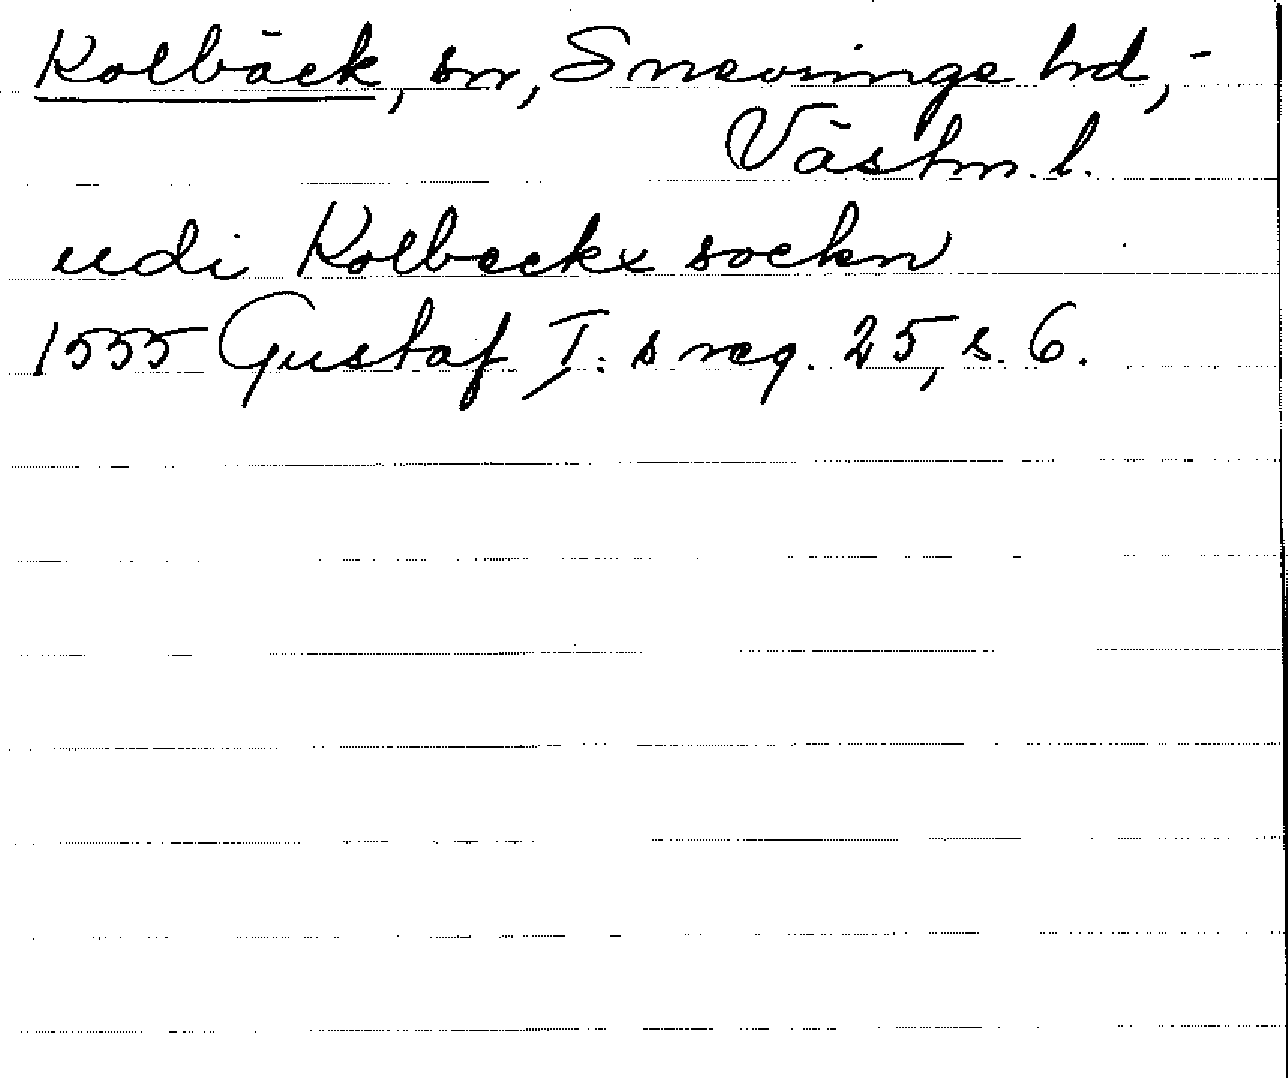 Kolbäck, sn, Snevringe hd,-
Västm. l.
udi Kolbeckx sockn
1555 Gustaf I:s reg. 25, s. 6.